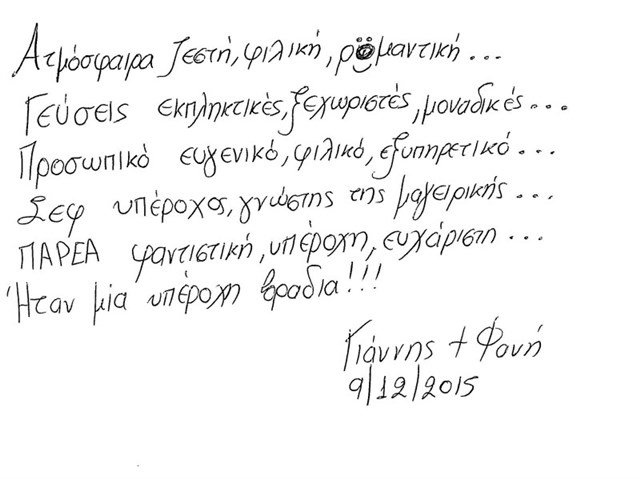 Ατμόσφαιρα ζεστή, φιλική, ρομαντική...
Γεύσεις εκπληκτικές, ξεχωριστές, μοναδικές...
Προσωπικό ευγενικό, φιλικό, εξυπηρετικό...
Σεφ υπέροχος, γνώστης της μαγειρικής...
ΠΑΡΕΑ φαντιστική, υπέροχη, ευχάριστη...
Ήταν μία υπέροχη βραδια!!!
Γιάννης + Φανή
9/12/2015